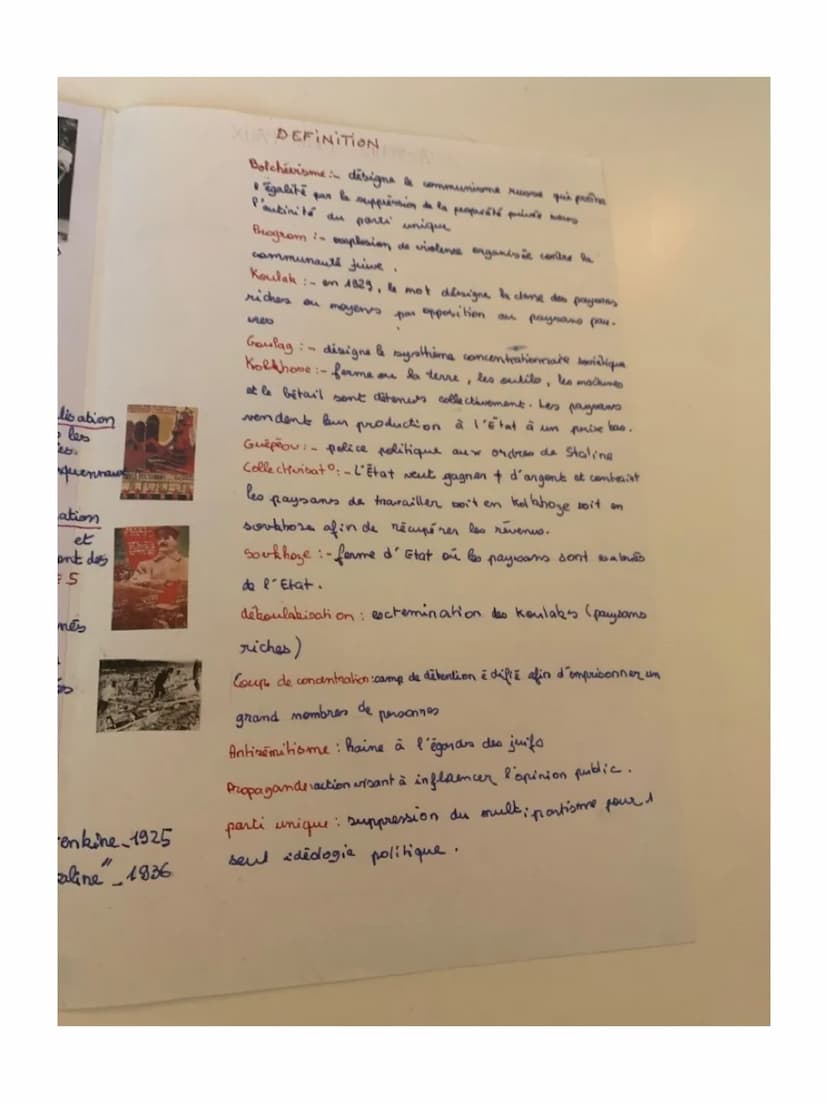 DEFINITION
Bolchévisme :- désigne le communisme russe qui prône
l'égalité par la suppression de la propriété privée sous
l'autorité du parti unique
Pogrom :- explosion de violence organisée contre la
communauté juive.
Koulak :- en 1929, le mot désigne la classe des paysans
riches ou moyens par opposition au paysans pau-
vres
Goulag :- désigne le système concentrationnaire soviétique
Kolkhoze :- ferme ou la terre, les outils, les machines
et le bétail sont détenus collectivement. Les paysans
vendent leur production à l'État à un prix bas.
Guépéou :- police politique aux ordres de Staline
Collectivisat° :- L'État veut gagner + d'argent et contraint
les paysans de travailler soit en kolkhoze soit en
sovkhoze afin de récupérer les revenus.
Sovkhoze :- ferme d'Etat où les paysans sont salariés
de l'Etat.
dékoulakisation : exctermination des Koulaks (paysans
riches)
de concentration : camp de détention édifié afin d'emprisonner un
grand nombres de personnes
Antisémitisme : haine à l'égards des juifs
Propagande : action visant à influencer l'opinion public.
parti unique : suppression du multipartisme pour 1
seul idéologie politique.
lisation
les
quennaux
ation
et
ont des
5
nés
enkine_1925
aline" _ 1936